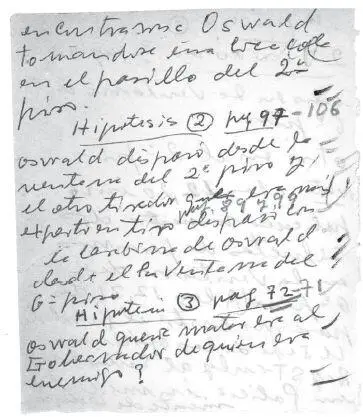 encontrasose Oswald
tomandose una coca cola
en el pasillo del 2º
piso.
Hipotesis ② pag 97-106
oswald disparó desde la
ventana del 2º piso y
el otro tirador que era mas
experto en tiro disparó con
la carabina de oswald
desde el la ventana del
6º piso
Hipotesis ③ pag 72-71
oswald queria matar era al
Gobernador de quien era
enemigo?